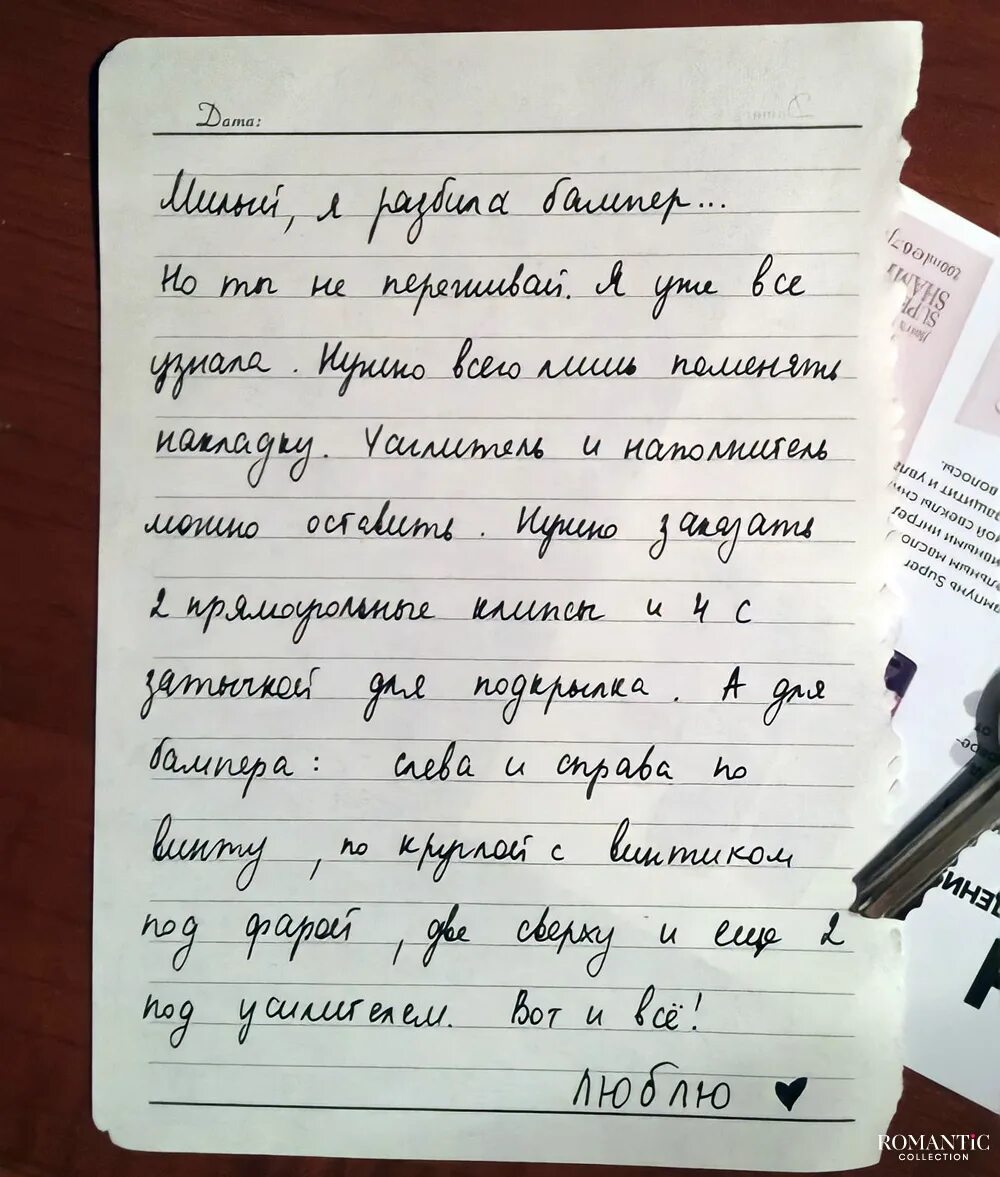 Дата:
Милый, я разбила бампер...
Но ты не переживай. Я уже все
узнала. Нужно всего лишь поменять
накладку. Усилитель и наполнитель
можно оставить. Нужно заказать
2 прямоугольные клипсы и 4 с
затычкой для подкрылка. А для
бампера: слева и справа по
винту, по круглой с винтиком
под фарой, две сверху и еще 2
под усилителем. Вот и всё!
ЛЮБЛЮ
200ml e 6.7
SHAM
SUP
волосы.
защитит и увл
ной свеклы сни
льным масло
мпунь Super
ДЕНИ
ROMANTIC
COLLECTION